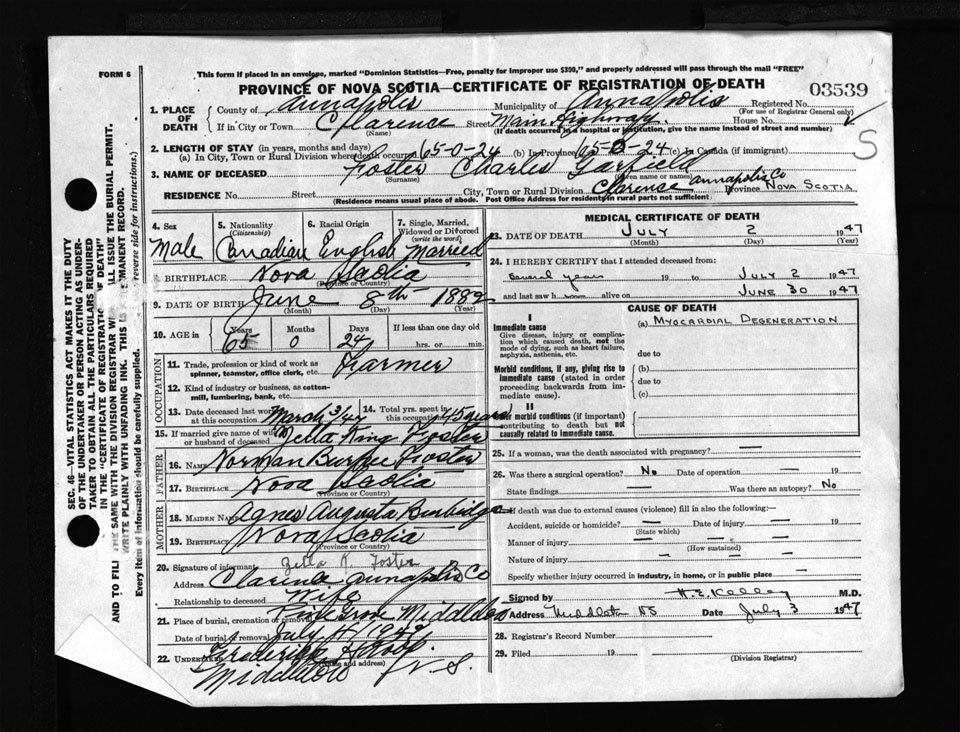 FORM 6
This form if placed in an envelope, marked "Dominion Statistics—Free, penalty for improper use $300," and properly addressed will pass through the mail "FREE"
PROVINCE OF NOVA SCOTIA—CERTIFICATE OF REGISTRATION OF DEATH
03539
S
1. PLACE OF DEATH
County of Annapolis Municipality of Annapolis Registered No.
(For use of Registrar General only)
If in City or Town Clarence Street Main Highway House No.
(Name) (If death occurred in a hospital or institution, give the name instead of street and number)
2. LENGTH OF STAY (in years, months and days)
(a) In City, Town or Rural Division where death occurred 65-0-24 (b) In Province 65-0-24 (c) In Canada (if immigrant)
3. NAME OF DECEASED Foster Charles Garfield
(Surname) (Given name or names)
RESIDENCE No. Street City, Town or Rural Division Clarence Annapolis Co Province NOVA SCOTIA
(Residence means usual place of abode. Post Office Address for residents in rural parts not sufficient)
SEC. 46—VITAL STATISTICS ACT MAKES IT THE DUTY
OF THE UNDERTAKER OR PERSON ACTING AS UNDER-
TAKER TO OBTAIN ALL THE PARTICULARS REQUIRED
IN THE "CERTIFICATE OF REGISTRATION OF DEATH"
AND TO FILE THE SAME WITH THE DIVISION REGISTRAR WILL ISSUE THE BURIAL PERMIT.
WRITE PLAINLY WITH UNFADING INK. THIS IS PERMANENT RECORD.
Every item of information should be carefully supplied. reverse side for instructions.)
4. Sex
Male
5. Nationality
(Citizenship)
Canadian
6. Racial Origin
English
7. Single, Married, Widowed or Divorced
(write the word)
Married
8. BIRTHPLACE Nova Scotia
(Province or Country)
9. DATE OF BIRTH June 8th 1882
(Month) (Day) (Year)
10. AGE in Years Months Days If less than one day old
65 0 24 hrs. or min.
OCCUPATION
11. Trade, profession or kind of work as spinner, teamster, office clerk, etc. Farmer
12. Kind of industry or business, as cotton-mill, lumbering, bank, etc.
13. Date deceased last worked at this occupation March 31/47
14. Total yrs. spent in this occupation 45 years
15. If married give name of wife or husband of deceased Zella King Foster
FATHER
16. NAME Norman Burpee Foster
17. BIRTHPLACE Nova Scotia
(Province or Country)
MOTHER
18. MAIDEN NAME Agnes Augusta Burbidge
19. BIRTHPLACE Nova Scotia
(Province or Country)
20. Signature of informant Zella K. Foster
Address Clarence Annapolis Co
Relationship to deceased Wife
21. Place of burial, cremation or removal Pine Grove Middleton
Date of burial or removal July 4 1947
22. UNDERTAKER Frederick
(Name and address)
Middleton N.S.
MEDICAL CERTIFICATE OF DEATH
23. DATE OF DEATH JULY 2 1947
(Month) (Day) (Year)
24. I HEREBY CERTIFY that I attended deceased from:
Several years 19 to JULY 2 1947
and last saw h alive on JUNE 30 1947
CAUSE OF DEATH
I
Immediate cause
Give disease, injury or complication which caused death, not the mode of dying, such as heart failure, asphyxia, asthenia, etc.
(a) MYOCARDIAL DEGENERATION
due to
Morbid conditions, if any, giving rise to immediate cause (stated in order proceeding backwards from immediate cause).
(b)
due to
(c)
II
Other morbid conditions (if important) contributing to death but not causally related to immediate cause.
25. If a woman, was the death associated with pregnancy? —
26. Was there a surgical operation? No Date of operation — 19
State findings — Was there an autopsy? No
27. If death was due to external causes (violence) fill in also the following:—
Accident, suicide or homicide? — Date of injury — 19
(State which)
Manner of injury — —
(How sustained)
Nature of injury — —
Specify whether injury occurred in industry, in home, or in public place —
Signed by H. E. Kelley M.D.
Address Middleton NS Date July 3 1947
28. Registrar's Record Number
29. Filed 19
(Division Registrar)